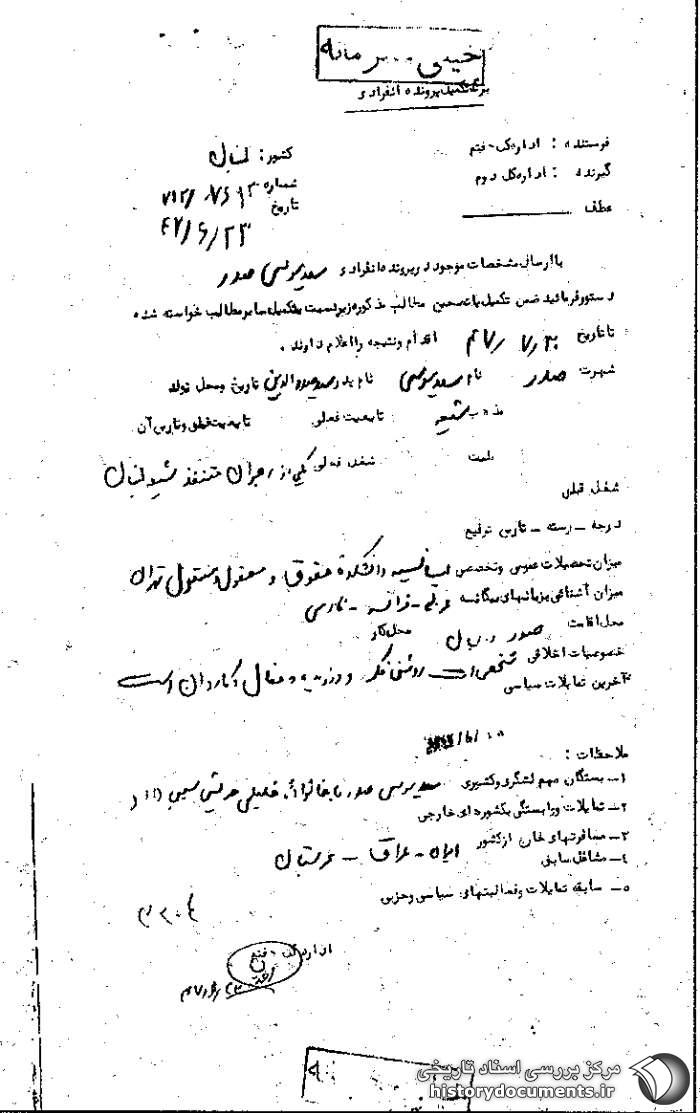 خیلی محرمانه
برگ تکمیل پرونده انفرادی
فرستنده : اداره کل هفتم
کشور : لبنان
گیرنده : اداره کل دوم
شماره
عطف
تاریخ ۴۷/۶/۲۳
با ارسال مشخصات موجود در پرونده انفرادی سید موسی صدر
دستور فرمائید ضمن تکمیل یا تصحیح مطالب مذکوره زیر نسبت به تکمیل سایر مطالب خواسته شده
تا تاریخ ۴۷/۷/۳۰ اقدام و نتیجه را اعلام دارند .
شهرت صدر نام سید موسی نام پدر سید صدرالدین تاریخ و محل تولد
مذهب شیعه تابعیت فعلی تابعیت قبلی و تاریخ آن
ملیت شغل فعلی یکی از رهبران متنفذ شیعه لبنان
شغل قبلی
درجه - رسته - تاریخ ترفیع
میزان تحصیلات عمومی و تخصصی لیسانسیه دانشکدهٔ حقوق و معقول و منقول تهران
میزان آشنائی بزبانهای بیگانه عربی - فرانسه - فارسی
محل اقامت صور محل کار
خصوصیات اخلاقی شخصی است روشنفکر و ورزیده و فعال و کاردان است
آخرین تمایلات سیاسی
ملاحظات :
۱- بستگان مهم لشگری و کشوری سید موسی صدر با خانواده
۲- تمایلات و وابستگی بکشورهای خارجی
۳- مسافرتهای خارج از کشور ایران - عراق - عربستان
۴- مشاغل سابق
۵- سابقه تمایلات و فعالیتهای سیاسی و حزبی
اداره کل هفتم
مرکز بررسی اسناد تاریخی
historydocuments.ir